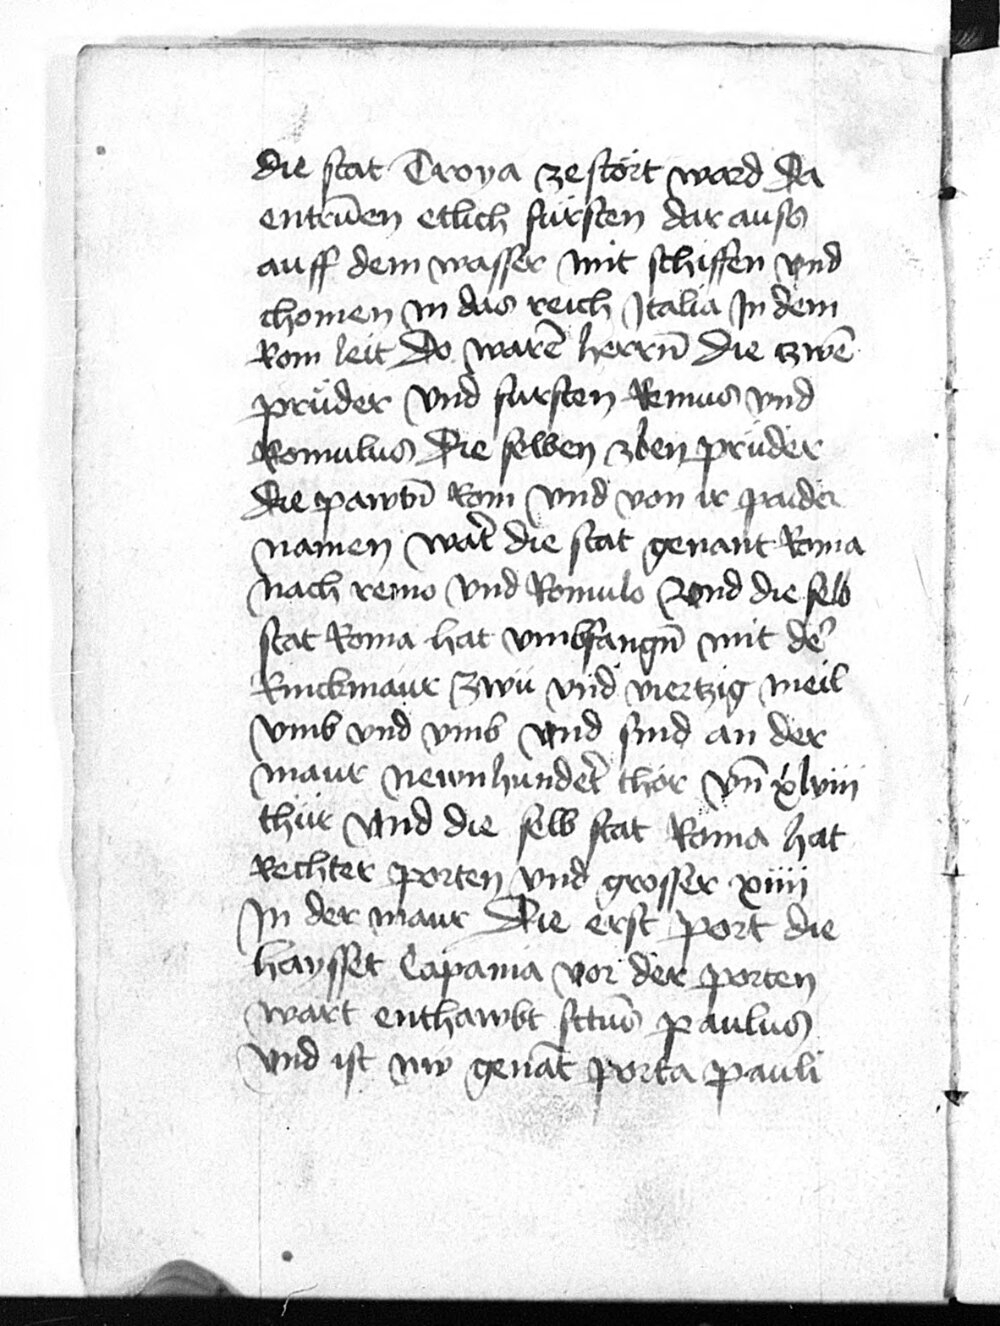 die stat Troya zestört ward Da
entrūnen etlich fürsten dar auss
auff dem wasser mit schiffen vnd
chomen in das reich Italia In dem
Rom leit Do warē herrn̄ Die zwē
prüder vnd fursten Remus vnd
Romulus Die selben zben prüder
die pawtn̄ Rom vnd von ir paider
namen wart̄ die stat genant Roma
nach remo vnd Romulo Vnd die selb
stat Roma hat vmbfangn̄ mit de᷑
Rinckmaur zwü vnd viertzig meil
vmb vnd vmb vnd sind an der
maur newnhundert̄ thör vn̄ xlviii
thür Vnd die selb stat Roma hat
Rechter porten vnd grosser xiiii
In der maur Die erst port die
haysset Capania vor der porten
wart enthawbt sctūs paulus
vnd ist nw genāt porta pauli